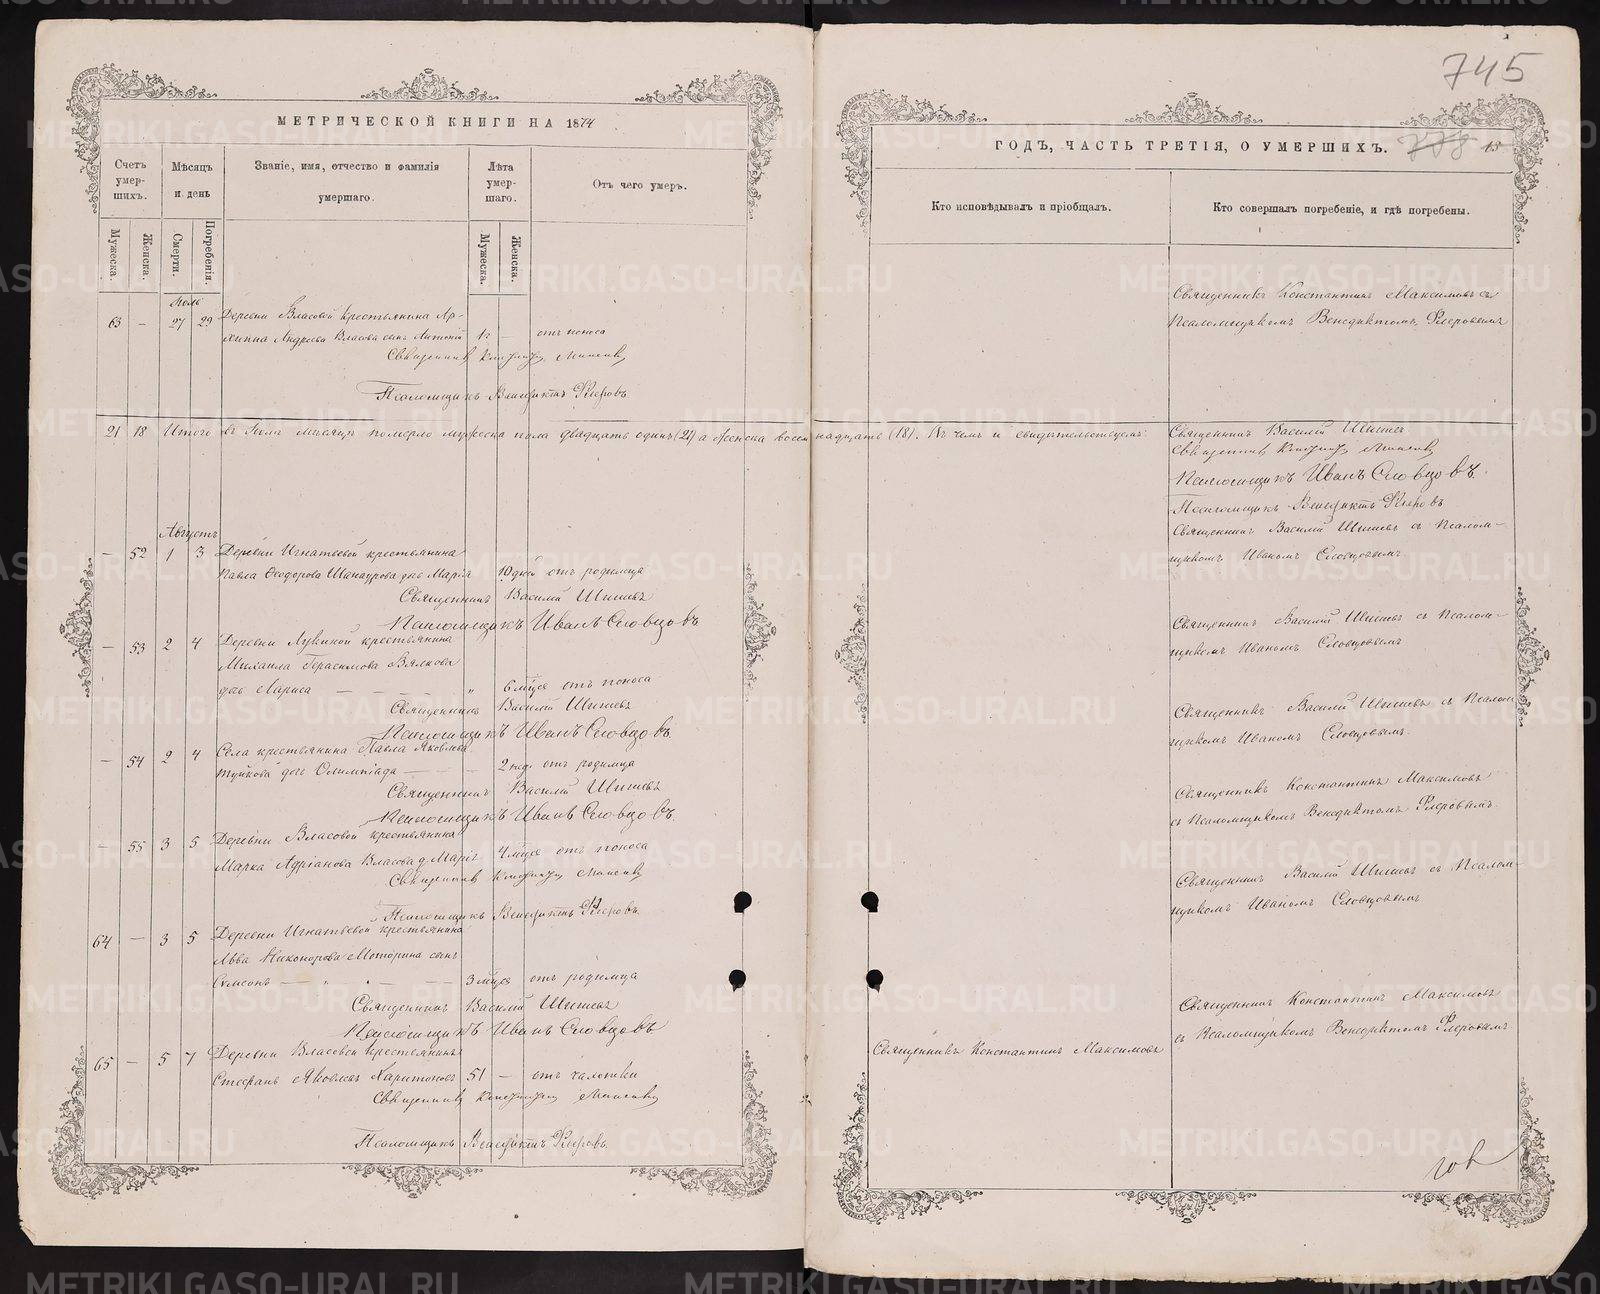 МЕТРИЧЕСКОЙ КНИГИ НА 1874
Счетъ умершихъ.
Мѣсяцъ и день
Званіе, имя, отчество и фамилія умершаго.
Лѣта умершаго.
Отъ чего умеръ.
Мужеска.
Женска.
Смерти.
Погребенія.
Мужеска.
Женска.
Іюль
63 — 27 29 Деревни Власовой крестьянина Ар-
хиппа Андреева Власова сынъ Антоній — отъ поноса
Священникъ
Псаломщикъ Венедиктъ Флеровъ
21 18 Итого въ Іюлѣ мѣсяцѣ померло мужеска пола двадцать одинъ (21) а женска восемнадцать (18). Въ чемъ и свидѣтельствуемъ:
Августъ
— 52 1 3 Деревни Игнатьевой крестьянина
Павла Ѳеодорова дочь Марія 10 дней отъ родимца
Священникъ Василій Шишевъ
Псаломщикъ Иванъ Словцовъ
— 53 2 4 Деревни Лукиной крестьянина
Михаила Герасимова Вялкова
дочь Лариса — — — — „ 6 мѣсе отъ поноса
Священникъ Василій Шишевъ
Псаломщикъ Иванъ Словцовъ.
— 54 2 4 Села крестьянина Павла Яковлева
дочь Олимпіада — — — 2 нед. отъ родимца
Священникъ Василій Шишевъ
Псаломщикъ Иванъ Словцовъ.
— 55 3 5 Деревни Власовой крестьянина
Марка Адріанова Власова д. Марія 4 мѣсе отъ поноса
Священникъ
Псаломщикъ Венедиктъ Флеровъ.
64 — 3 5 Деревни Игнатьевой крестьянина
Льва Никонорова Моторина сынъ
Самсонъ — 3 мѣсе отъ родимца
Священникъ Василій Шишевъ
Псаломщикъ Иванъ Словцовъ
65 — 5 7 Деревни Власовой крестьянинъ
Стефанъ Яковлевъ Харитоновъ 51 — отъ чахотки
Священникъ
Псаломщикъ Венедиктъ Флеровъ.
745
ГОДЪ, ЧАСТЬ ТРЕТІЯ, О УМЕРШИХЪ. 778
Кто исповѣдывалъ и пріобщалъ.
Кто совершалъ погребеніе, и гдѣ погребены.
Священникъ Константинъ Максимовъ съ
Псаломщикомъ Венедиктомъ Флеровымъ
Священникъ Василій Шишевъ
Священникъ
Псаломщикъ Иванъ Словцовъ.
Псаломщикъ Венедиктъ Флеровъ
Священникъ Василій Шишевъ съ Псалом-
щикомъ Иваномъ Словцовымъ
Священникъ Василій Шишевъ съ Псалом-
щикомъ Иваномъ Словцовымъ
Священникъ Василій Шишевъ съ Псалом
щикомъ Иваномъ Словцовымъ.
Священникъ Константинъ Максимовъ
съ Псаломщикомъ Венедиктомъ Флеровымъ.
Священникъ Василій Шишевъ съ Псалом-
щикомъ Иваномъ Словцовымъ
Священникъ Константинъ Максимовъ
съ Псаломщикомъ Венедиктомъ Флеровымъ
Священникъ Константинъ Максимовъ
METRIKI.GASO-URAL.RU